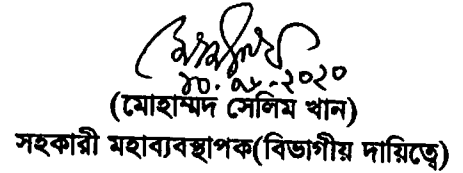 ২০২০
(মোহাম্মদ সেলিম খান)
সহকারী মহাব্যবস্থাপক(বিভাগীয় দায়িত্বে)